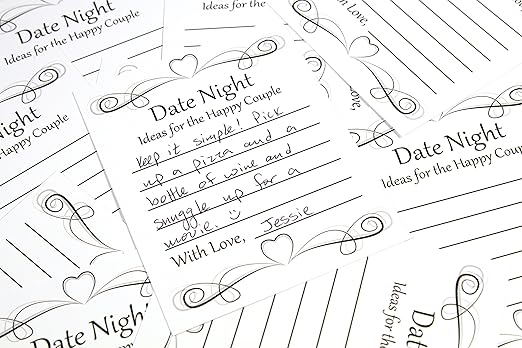 Date Night
Ideas for the Happy Couple
Keep it simple! Pick
up a pizza and a
bottle of wine and
snuggle up for a
movie. ☺
With Love, Jessie
Date Night
Ideas for the Happy Couple
Date Night
Ideas for the Happy Couple
Ideas for the
With Love,
Date Night
Ideas for the Happy Couple
Date Night
Ideas for the Happy Couple
Date Night
Ideas for the